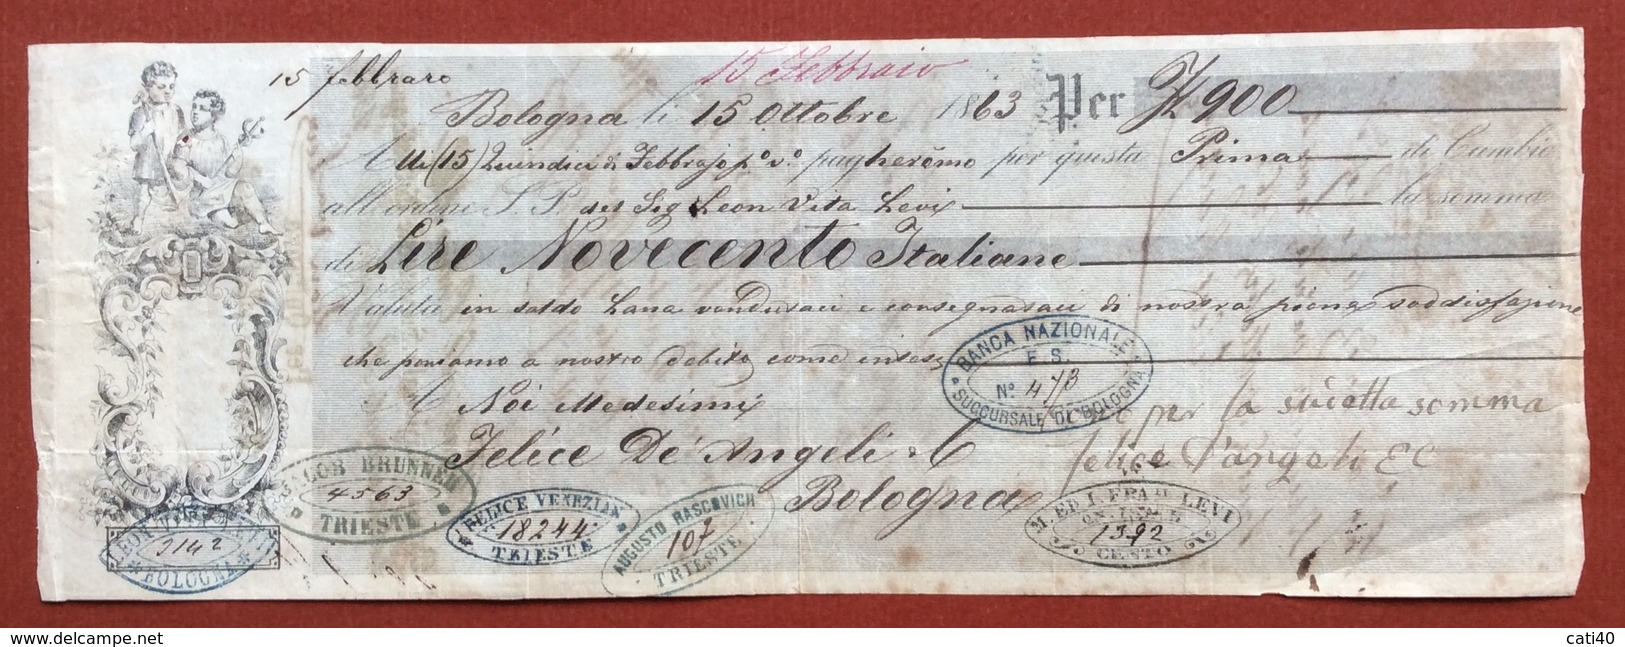 15 febbraro
15 Febbraio
Bologna li 15 Ottobre 1863 Per £ 900
A lli (15) Quindici di Febbrajo p.o v.o pagheremo per questa Prima di Cambio
all'ordine S.P. del Sig Leon Vita Levi la somma
di Lire Novecento Italiane
Valuta in saldo Lana vendutaci e consegnataci di nostra piena soddisfazione
che poniamo a nostro debito come intesi
A Noi Medesimi
Felice De' Angeli & C
Bologna
per la sudetta somma
felice D'angeli E C
BANCA NAZIONALE
F. S.
No. 473
SUCCURSALE DI BOLOGNA
JACOB BRUNNER
4563
TRIESTE
FELICE VENEZIAN
18244
TRIESTE
AUGUSTO RASCOVICH
107
TRIESTE
M. ED. I. FRA LEVI
1392
CENTO
LEON VITA LEVI
3142
BOLOGNA
http://www.delcampe.net
cati40